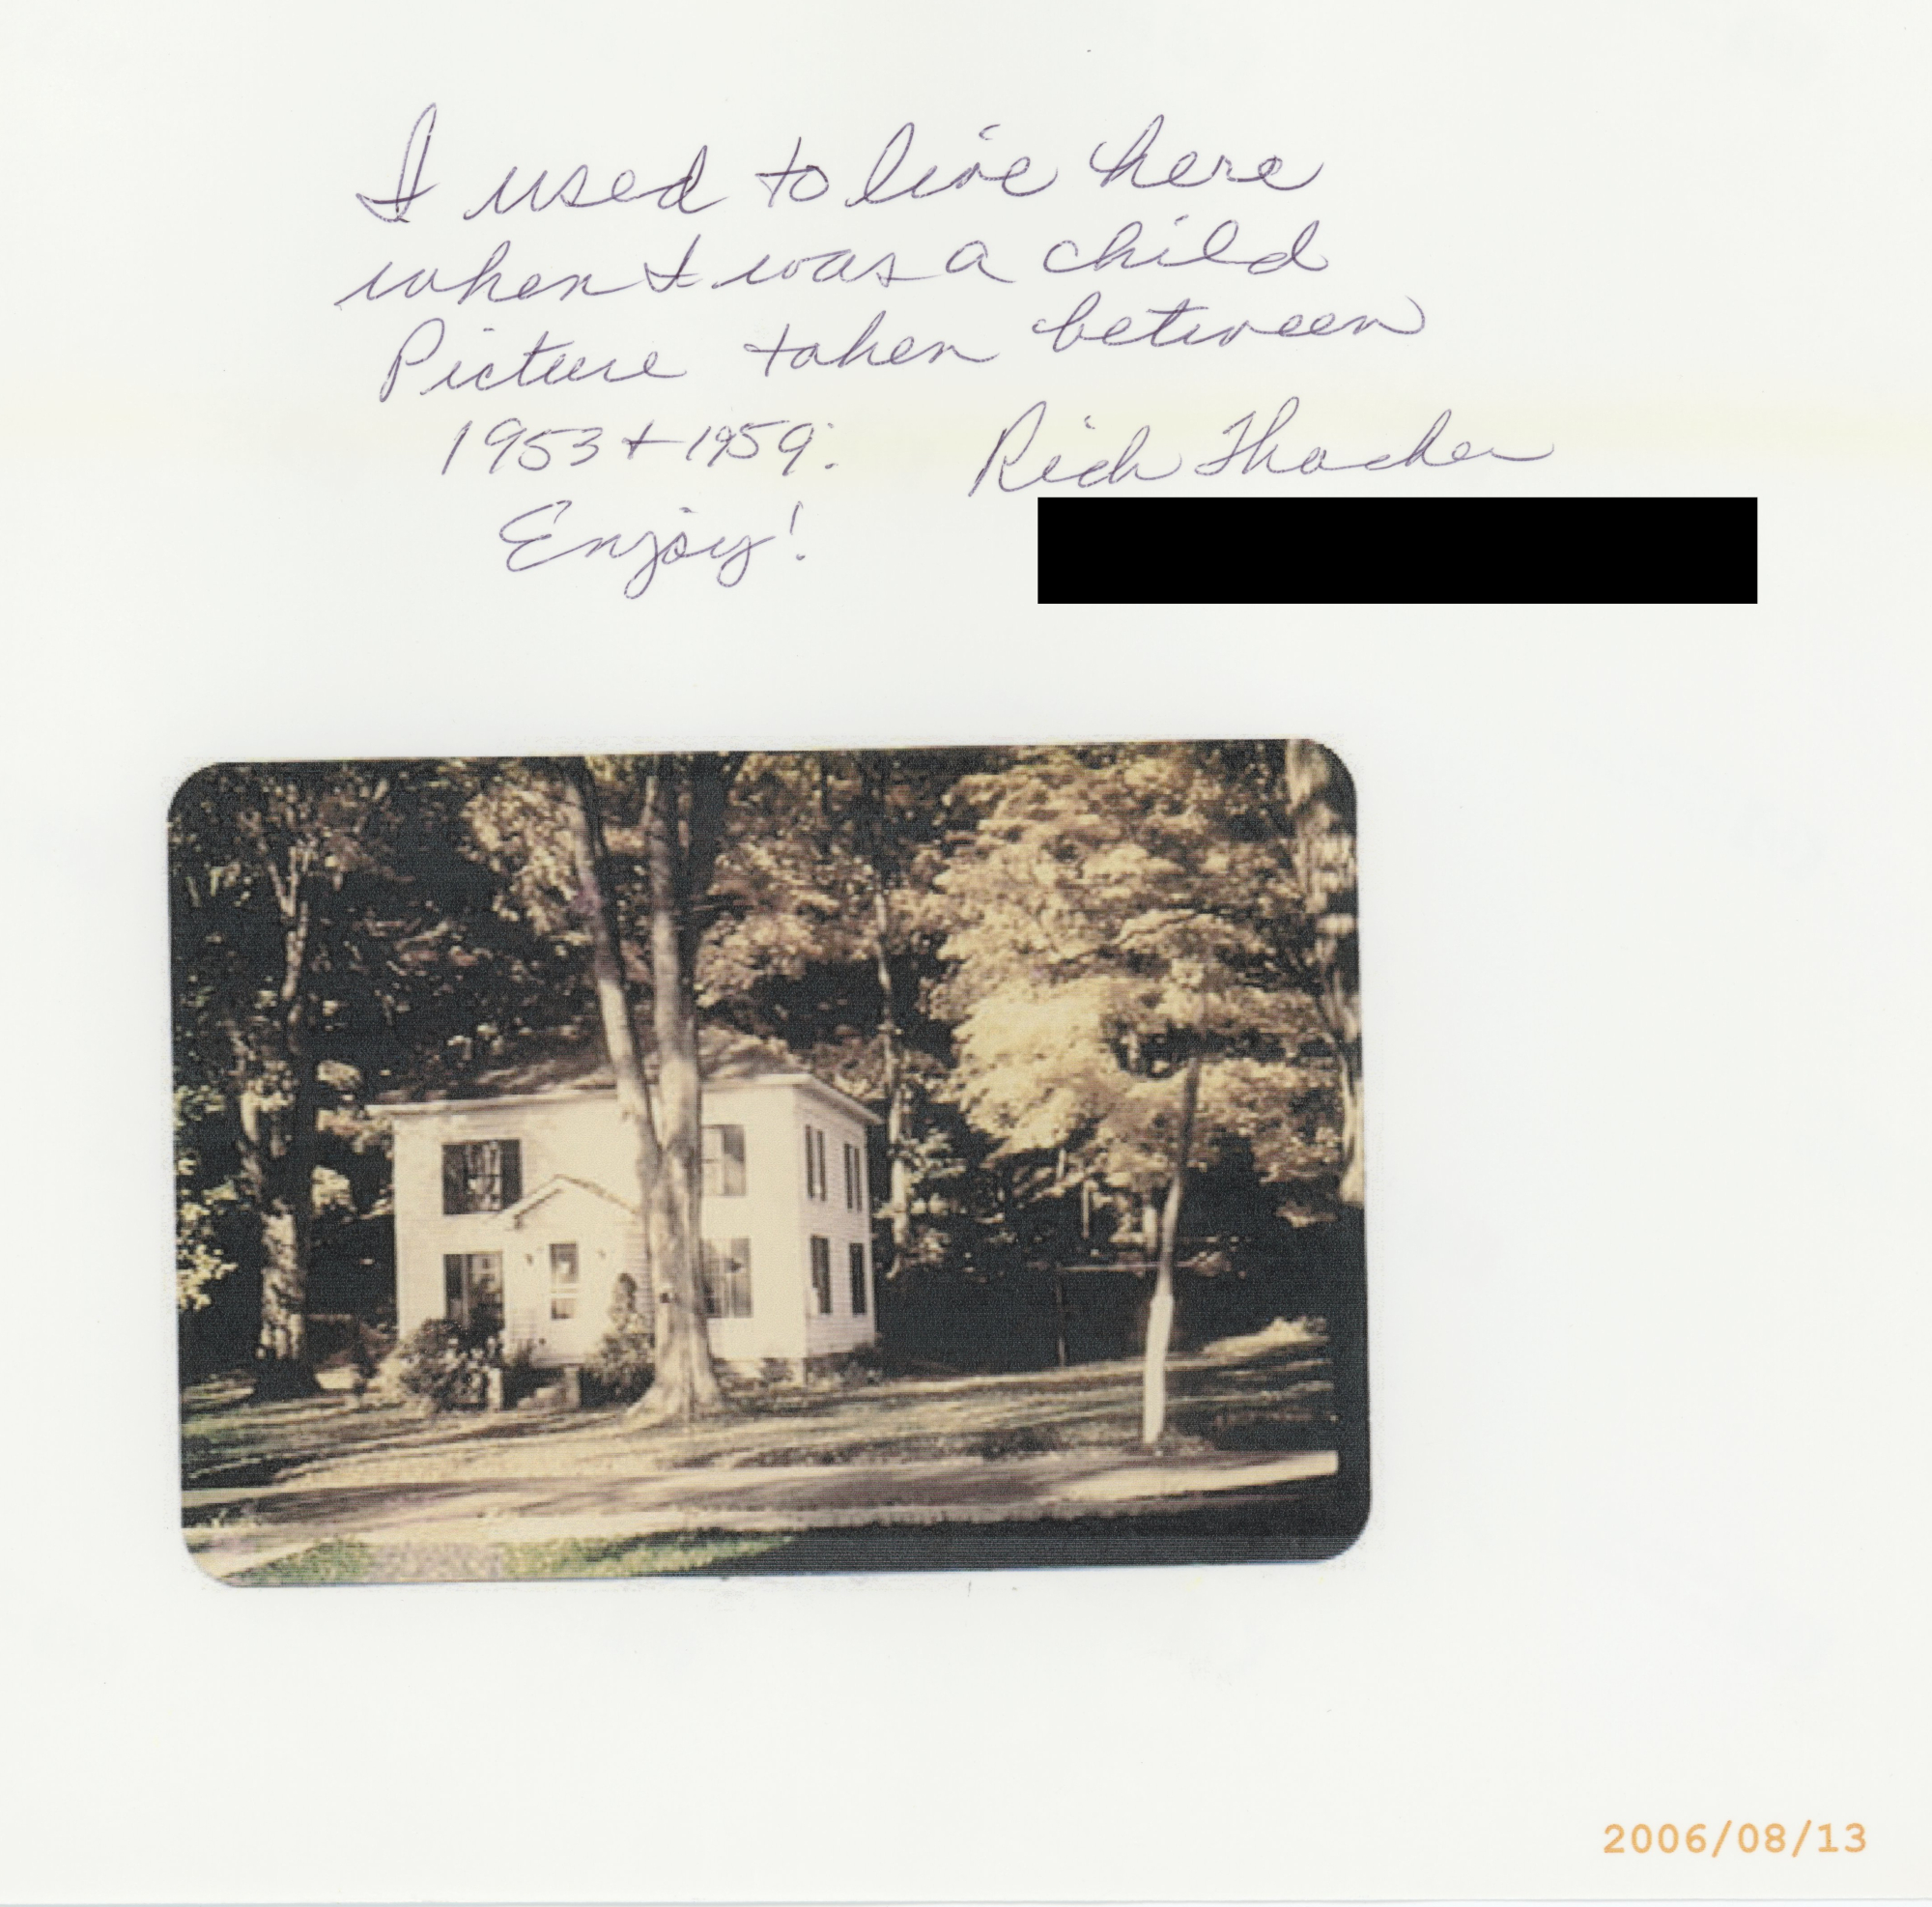 I used to live here
when I was a child
Picture taken between
1953 + 1959.
Rich Thacker
Enjoy!
2006/08/13